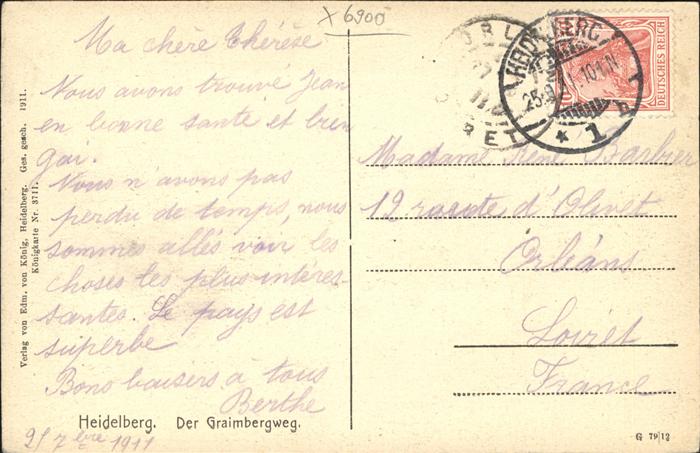 x 6900
Ma chère Thérèse
Nous avons trouvé Jean
en bonne santé et bien
gai.
Nous n'avons pas
perdu de temps, nous
sommes allés voir les
choses les plus intéres-
santes. Le pays est
superbe
Bons baisers à tous
Berthe
Heidelberg. Der Graimbergweg.
25 7bre 1911
Verlag von Edm. von König, Heidelberg. Ges. gesch. 1911.
Königkarte Nr. 3711.
HEIDELBERG
* 1
DEUTSCHES REICH
Madame René Barbier
12 route d'Olivet
Orléans
Loiret
France
G 79|12